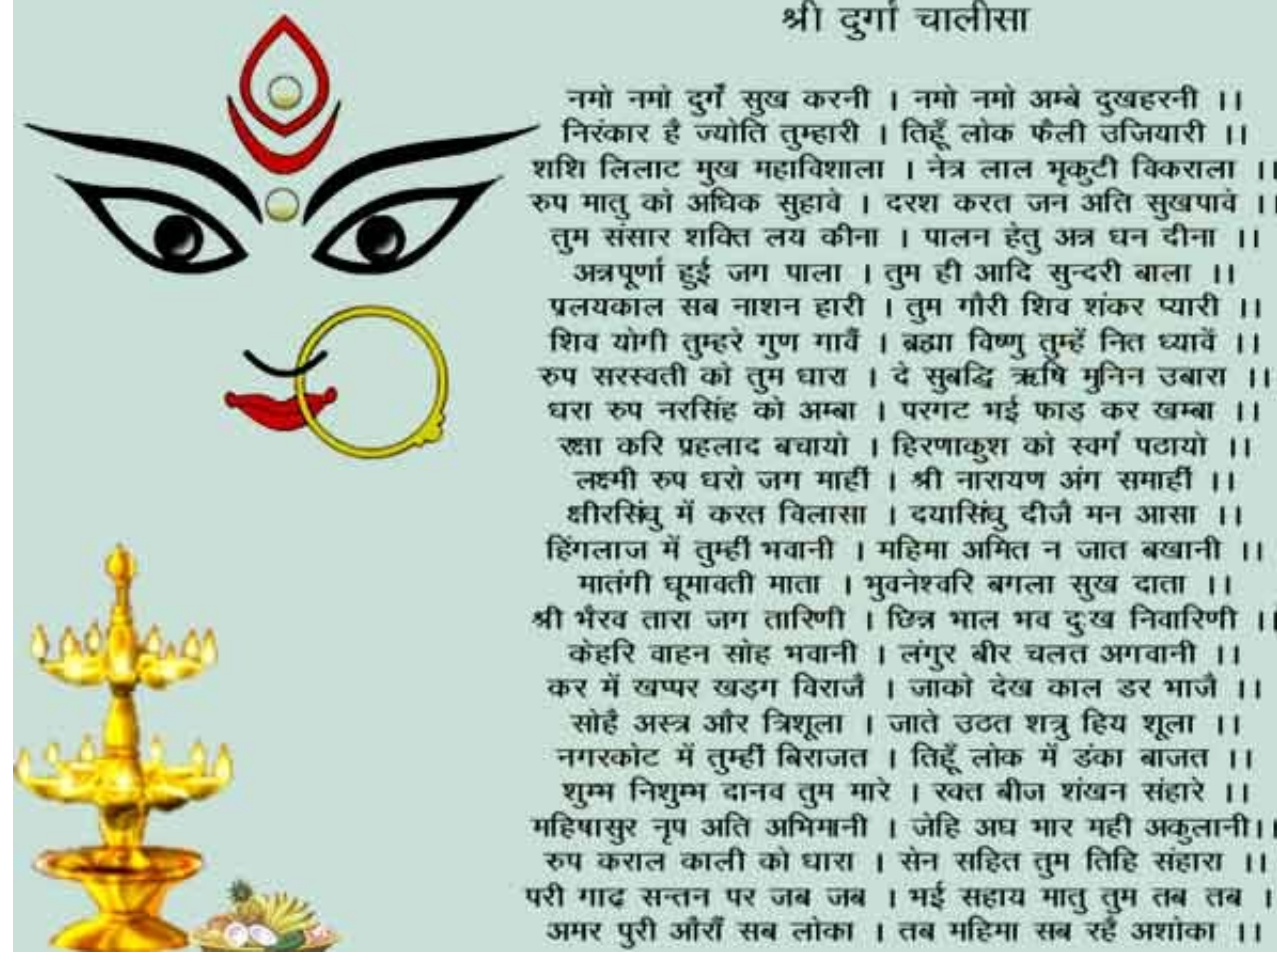 श्री दुर्गा चालीसा
नमो नमो दुर्गे सुख करनी । नमो नमो अम्बे दुखहरनी ।।
निरंकार है ज्योति तुम्हारी । तिहूँ लोक फैली उजियारी ।।
शशि लिलाट मुख महाविशाला । नेत्र लाल भृकुटी विकराला ।।
रुप मातु को अधिक सुहावे । दरश करत जन अति सुखपावे ।।
तुम संसार शक्ति लय कीना । पालन हेतु अन्न धन दीना ।।
अन्नपूर्णा हुई जग पाला । तुम ही आदि सुन्दरी बाला ।।
प्रलयकाल सब नाशन हारी । तुम गौरी शिव शंकर प्यारी ।।
शिव योगी तुम्हरे गुण गावैं । ब्रह्मा विष्णु तुम्हें नित ध्यावें ।।
रुप सरस्वती को तुम धारा । दे सुबद्धि ऋषि मुनिन उबारा ।।
धरा रुप नरसिंह को अम्बा । परगट भई फाड़ कर खम्बा ।।
रक्षा करि प्रहलाद बचायो । हिरणाकुश को स्वर्ग पठायो ।।
लक्ष्मी रुप धरो जग माहीं । श्री नारायण अंग समाहीं ।।
क्षीरसिंधु में करत विलासा । दयासिंधु दीजै मन आसा ।।
हिंगलाज में तुम्हीं भवानी । महिमा अमित न जात बखानी ।।
मातंगी धूमावती माता । भुवनेश्वरि बगला सुख दाता ।।
श्री भैरव तारा जग तारिणी । छिन्न भाल भव दुःख निवारिणी ।।
केहरि वाहन सोह भवानी । लंगुर बीर चलत अगवानी ।।
कर में खप्पर खड़ग विराजै । जाको देख काल डर भाजै ।।
सोहै अस्त्र और त्रिशूला । जाते उठत शत्रु हिय शूला ।।
नगरकोट में तुम्हीं बिराजत । तिहूँ लोक में डंका बाजत ।।
शुम्भ निशुम्भ दानव तुम मारे । रक्त बीज शंखन संहारे ।।
महिषासुर नृप अति अभिमानी । जेहि अघ भार मही अकुलानी।।
रुप कराल काली को धारा । सेन सहित तुम तिहि संहारा ।।
परी गाढ़ सन्तन पर जब जब । भई सहाय मातु तुम तब तब ।
अमर पुरी औरौं सब लोका । तब महिमा सब रहै अशोका ।।